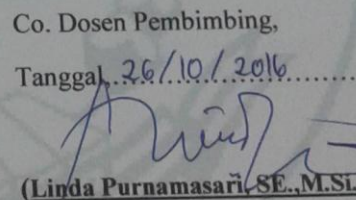 Co. Dosen Pembimbing,
Tanggal..26/10/2016..........
(Linda Purnamasari, SE.,M.Si